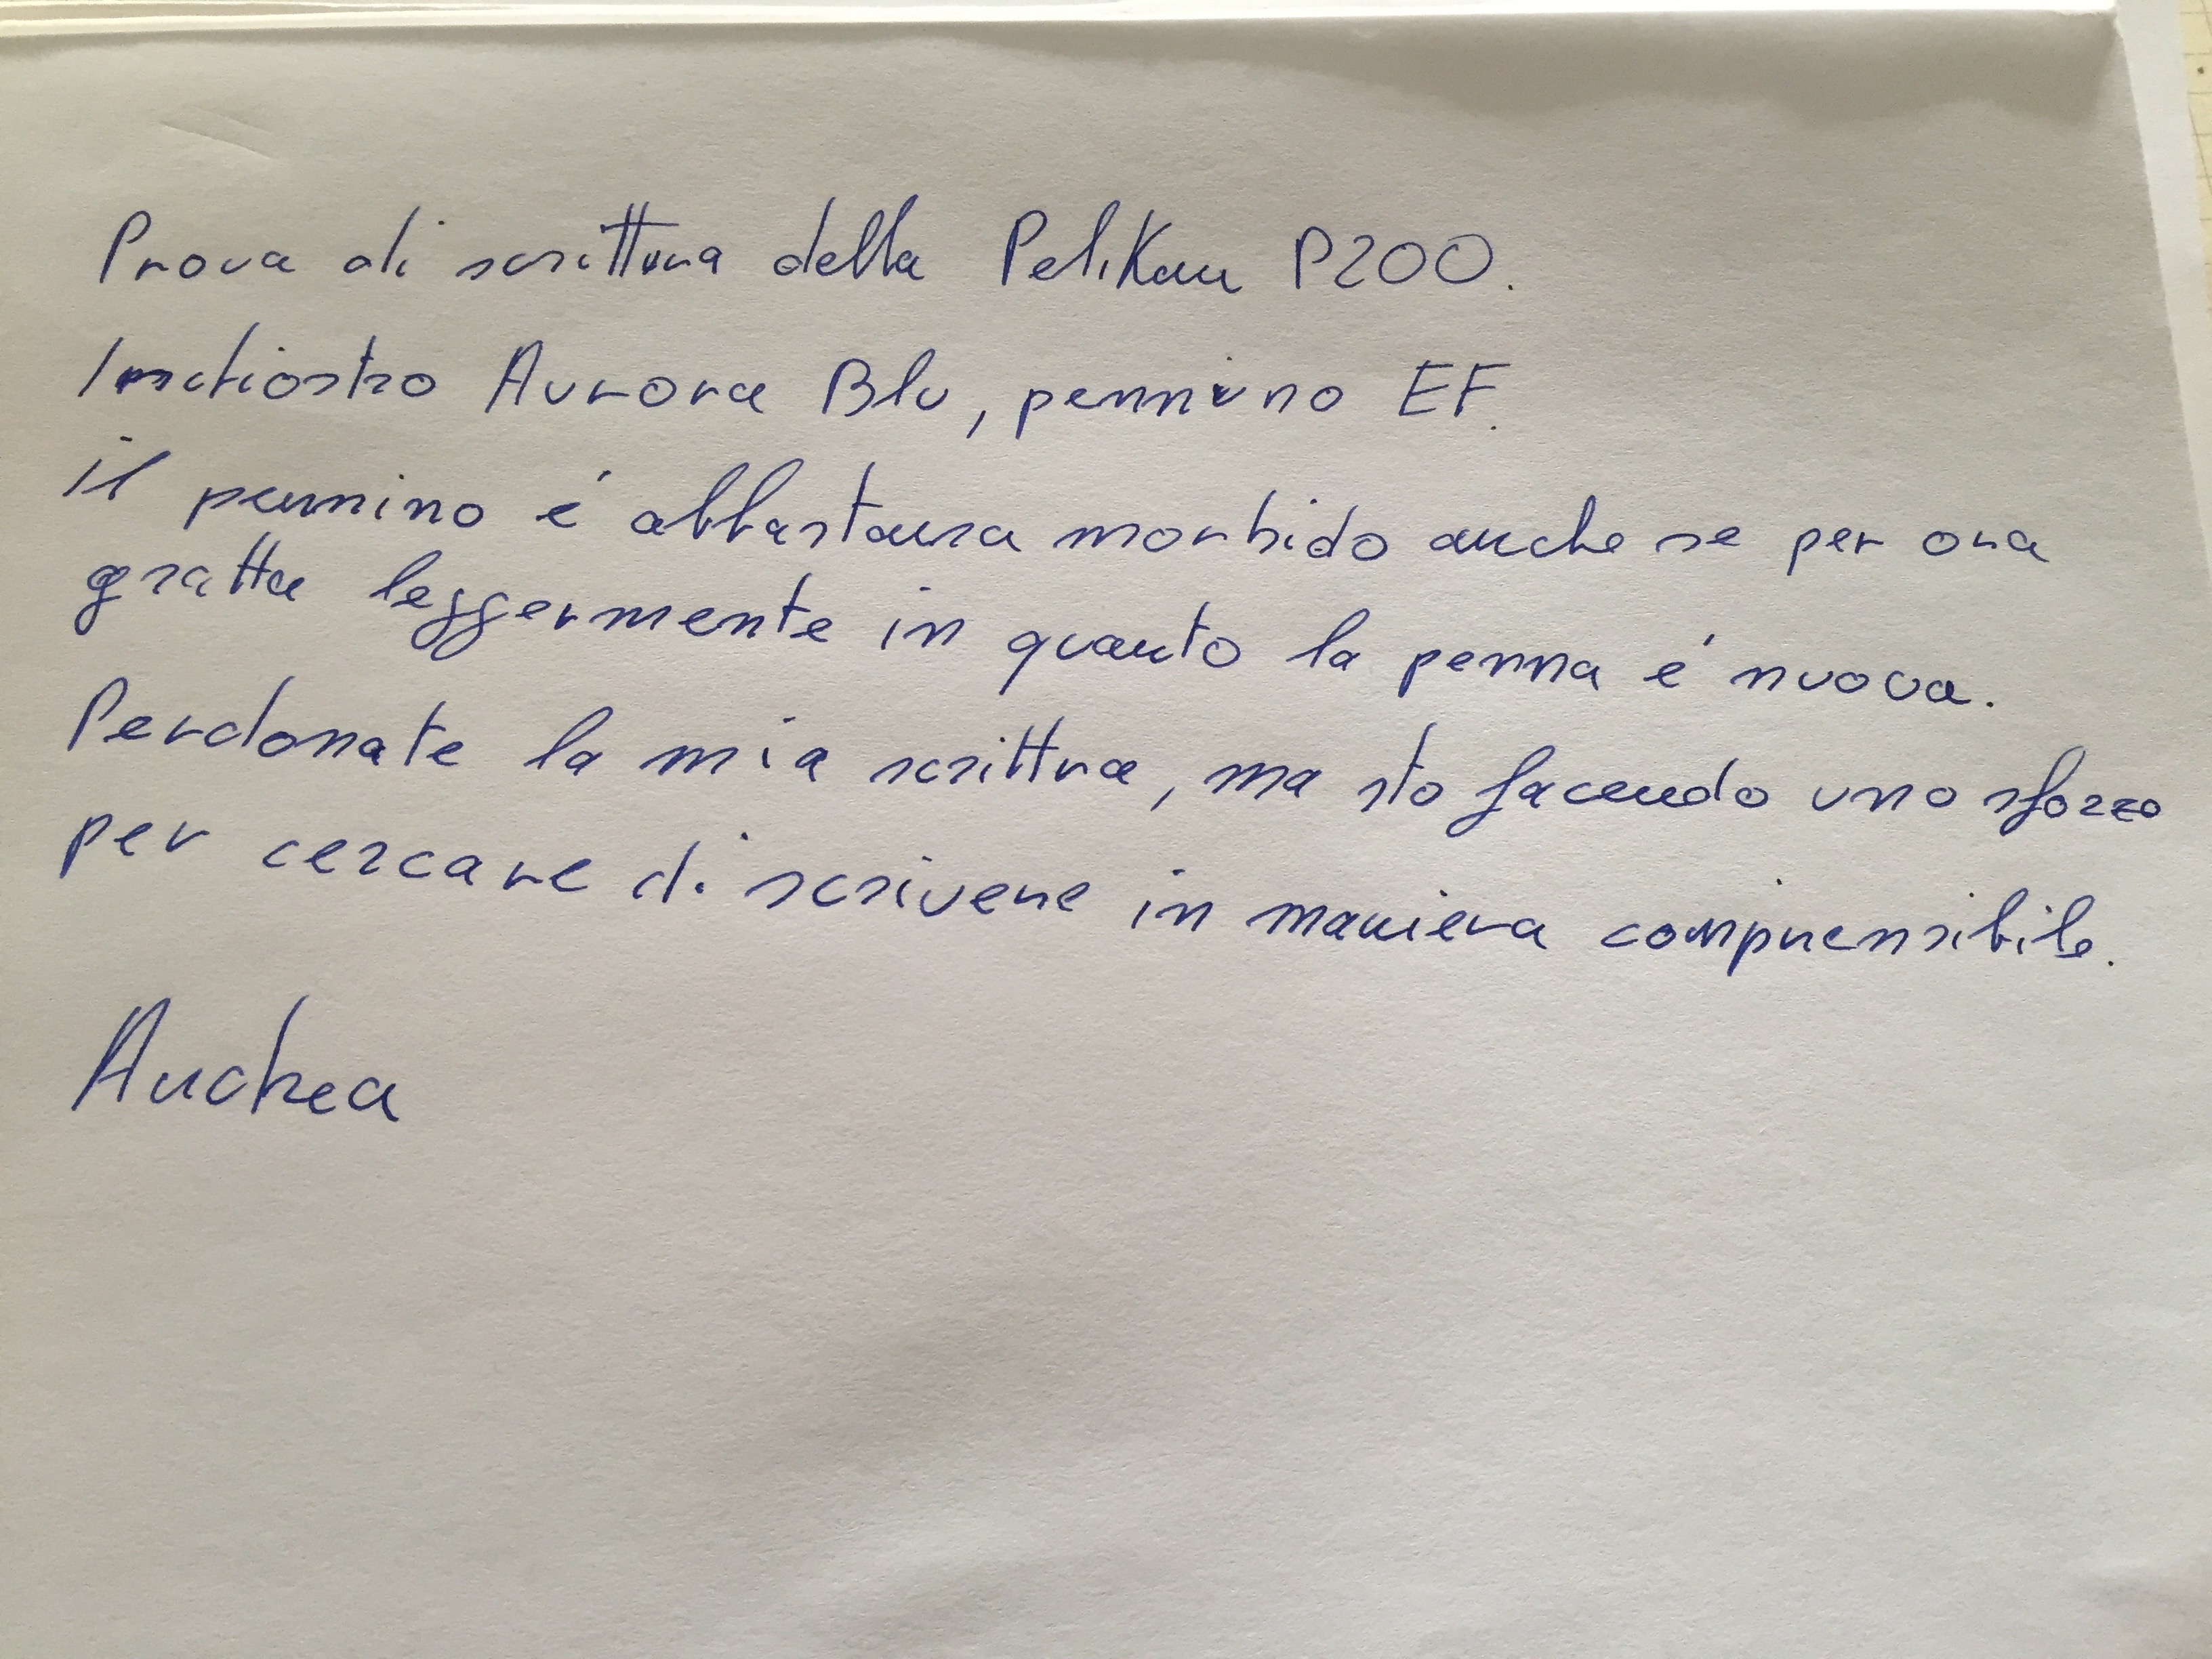 Prova di scrittura della Pelikan P200.
Inchiostro Aurora Blu, pennino EF.
il pennino é abbastanza morbido anche se per ora
gratta leggermente in quanto la penna é nuova.
Perdonate la mia scrittura, ma sto facendo uno sforzo
per cercare di scrivere in maniera comprensibile.
Andrea